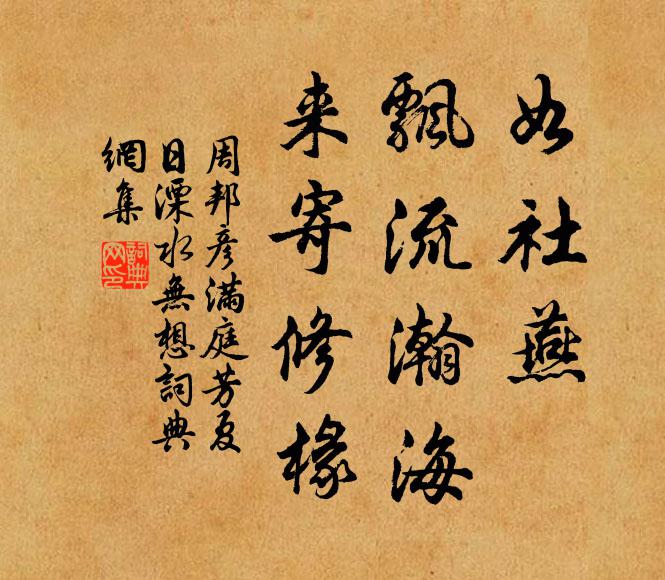 如社燕
飄流瀚海
来寄修椽
周邦彦滿庭芳夏
日溧水無想詞典
網集
詞典網印